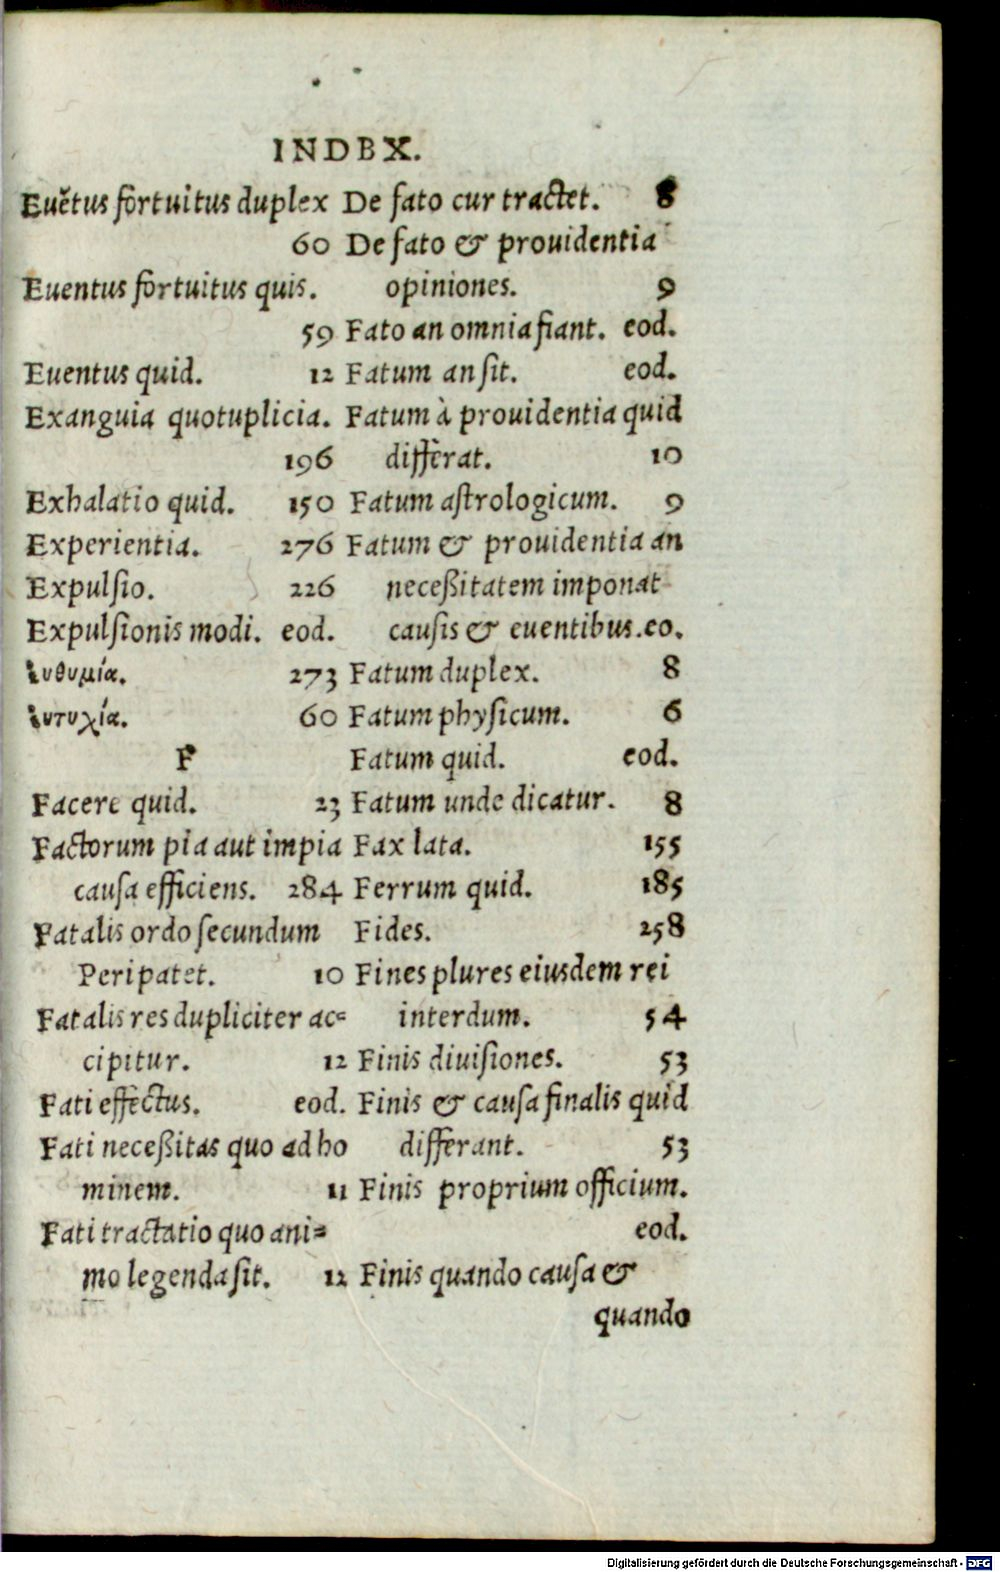 INDEX.
Euētus fortuitus duplex
60
Euentus fortuitus quis.
59
Euentus quid. 12
Exanguia quotuplicia.
196
Exhalatio quid. 150
Experientia. 276
Expulsio. 226
Expulsionis modi. eod.
ευθυμία. 273
ευτυχία. 60
F
Facere quid. 23
Factorum pia aut impia
causa efficiens. 284
Fatalis ordo secundum
Peripatet. 10
Fatalis res dupliciter ac=
cipitur. 12
Fati effectus. eod.
Fati neceßitas quo ad ho
minem. 11
Fati tractatio quo ani=
mo legenda sit. 12
De fato cur tractet. 8
De fato & prouidentia
opiniones. 9
Fato an omnia fiant. eod.
Fatum an sit. eod.
Fatum à prouidentia quid
differat. 10
Fatum astrologicum. 9
Fatum & prouidentia an
neceßitatem imponat
causis & euentibus. eo.
Fatum duplex. 8
Fatum physicum. 6
Fatum quid. eod.
Fatum unde dicatur. 8
Fax lata. 155
Ferrum quid. 185
Fides. 258
Fines plures eiusdem rei
interdum. 54
Finis diuisiones. 53
Finis & causa finalis quid
differant. 53
Finis proprium officium.
eod.
Finis quando causa &
quando
Digitalisierung gefördert durch die Deutsche Forschungsgemeinschaft - DFG